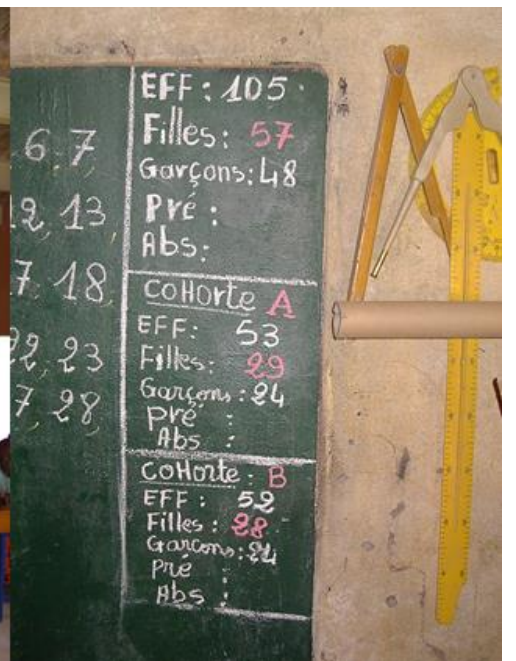 6, 7
2, 13
7, 18
22, 23
7, 28,
EFF : 105
Filles : 57
Garçons : 48
Pré :
Abs :
COHOrte A
EFF : 53
Filles : 29
Garçons : 24
Pré :
Abs :
COHOrte : B
EFF : 52
Filles : 28
Garçons : 24
Pré :
Abs :